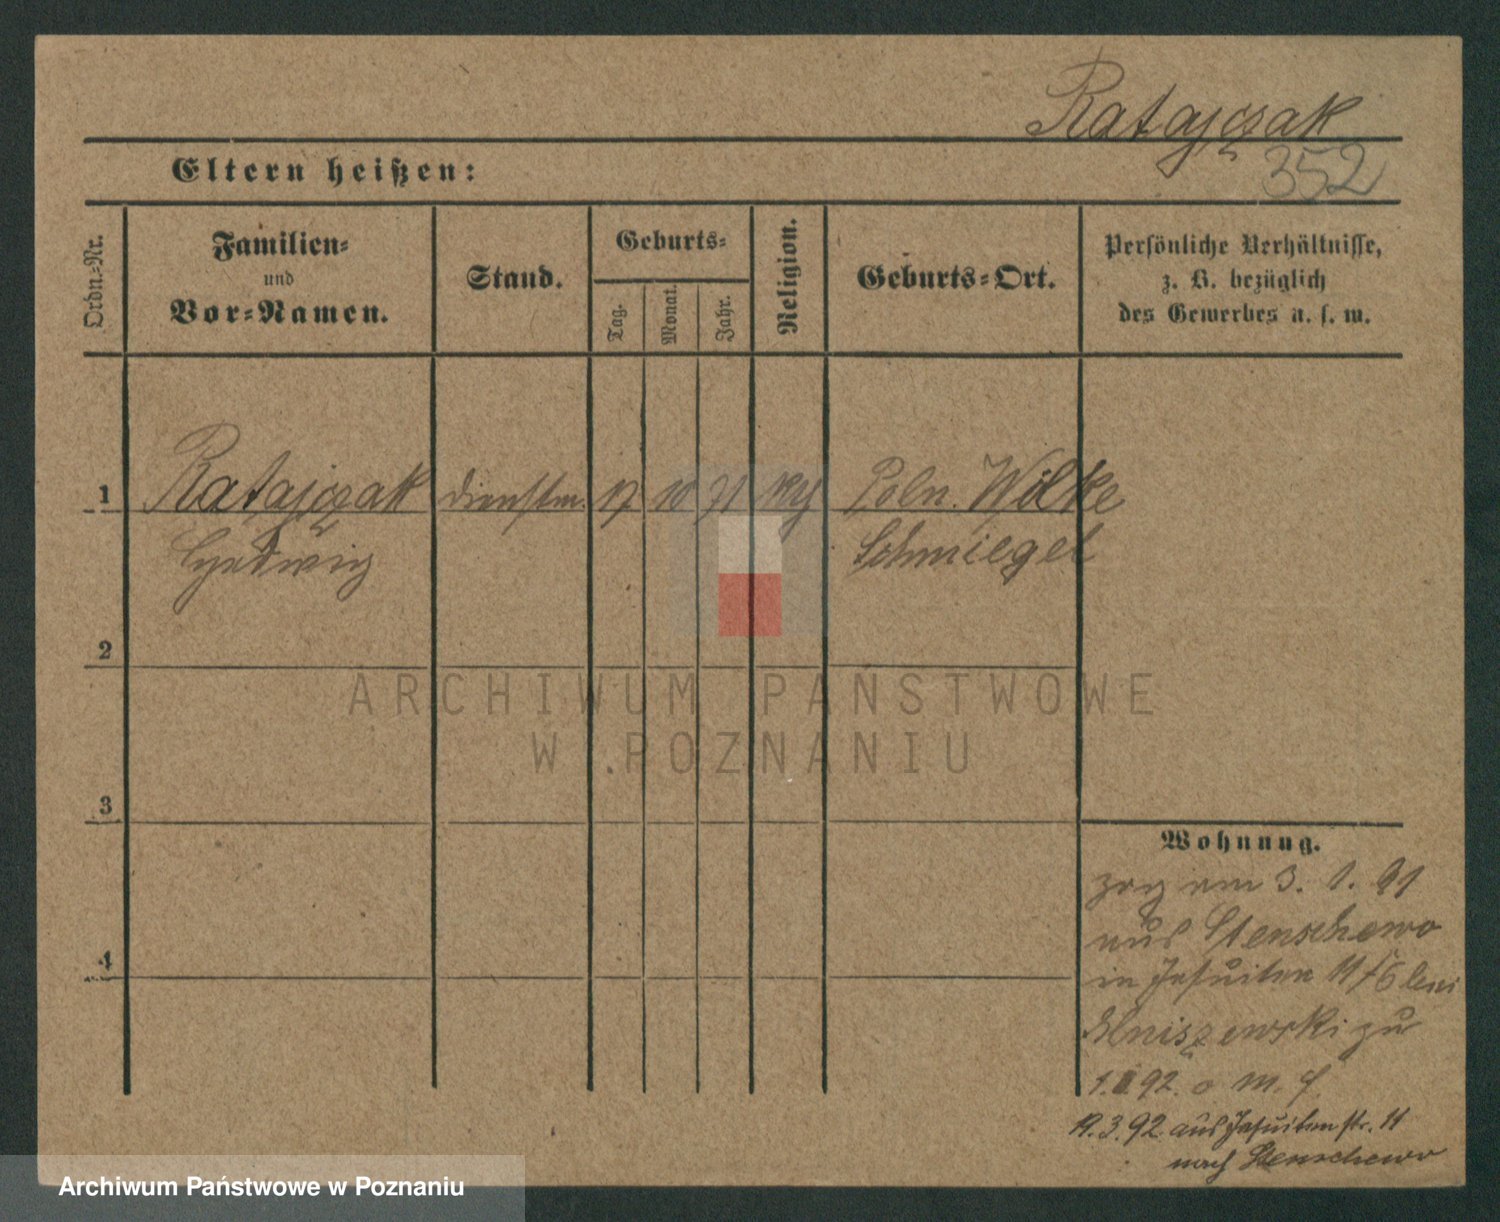 Ratajczak
352
Eltern heißen:
Ordn.-Nr.
Familien-
und
Vor-Namen.
Stand.
Geburts-
Tag.
Monat.
Jahr.
Religion.
Geburts-Ort.
Persönliche Verhältnisse,
z. B. bezüglich
des Gewerbes u. s. w.
1 Ratajczak Dienstm. 17 10 71 Poln. Wilke
Hedwig Schmiegel
2
ARCHIWUM PAŃSTWOWE
W POZNANIU
3
Wohnung.
zog am 3. 1. 91
aus Stenschewo
4
in Jesuiten 11/6 bei
zu
1. 92. o m. f.
19.3.92 aus Jesuitenstr. 11
nach Stenschewo
Archiwum Państwowe w Poznaniu